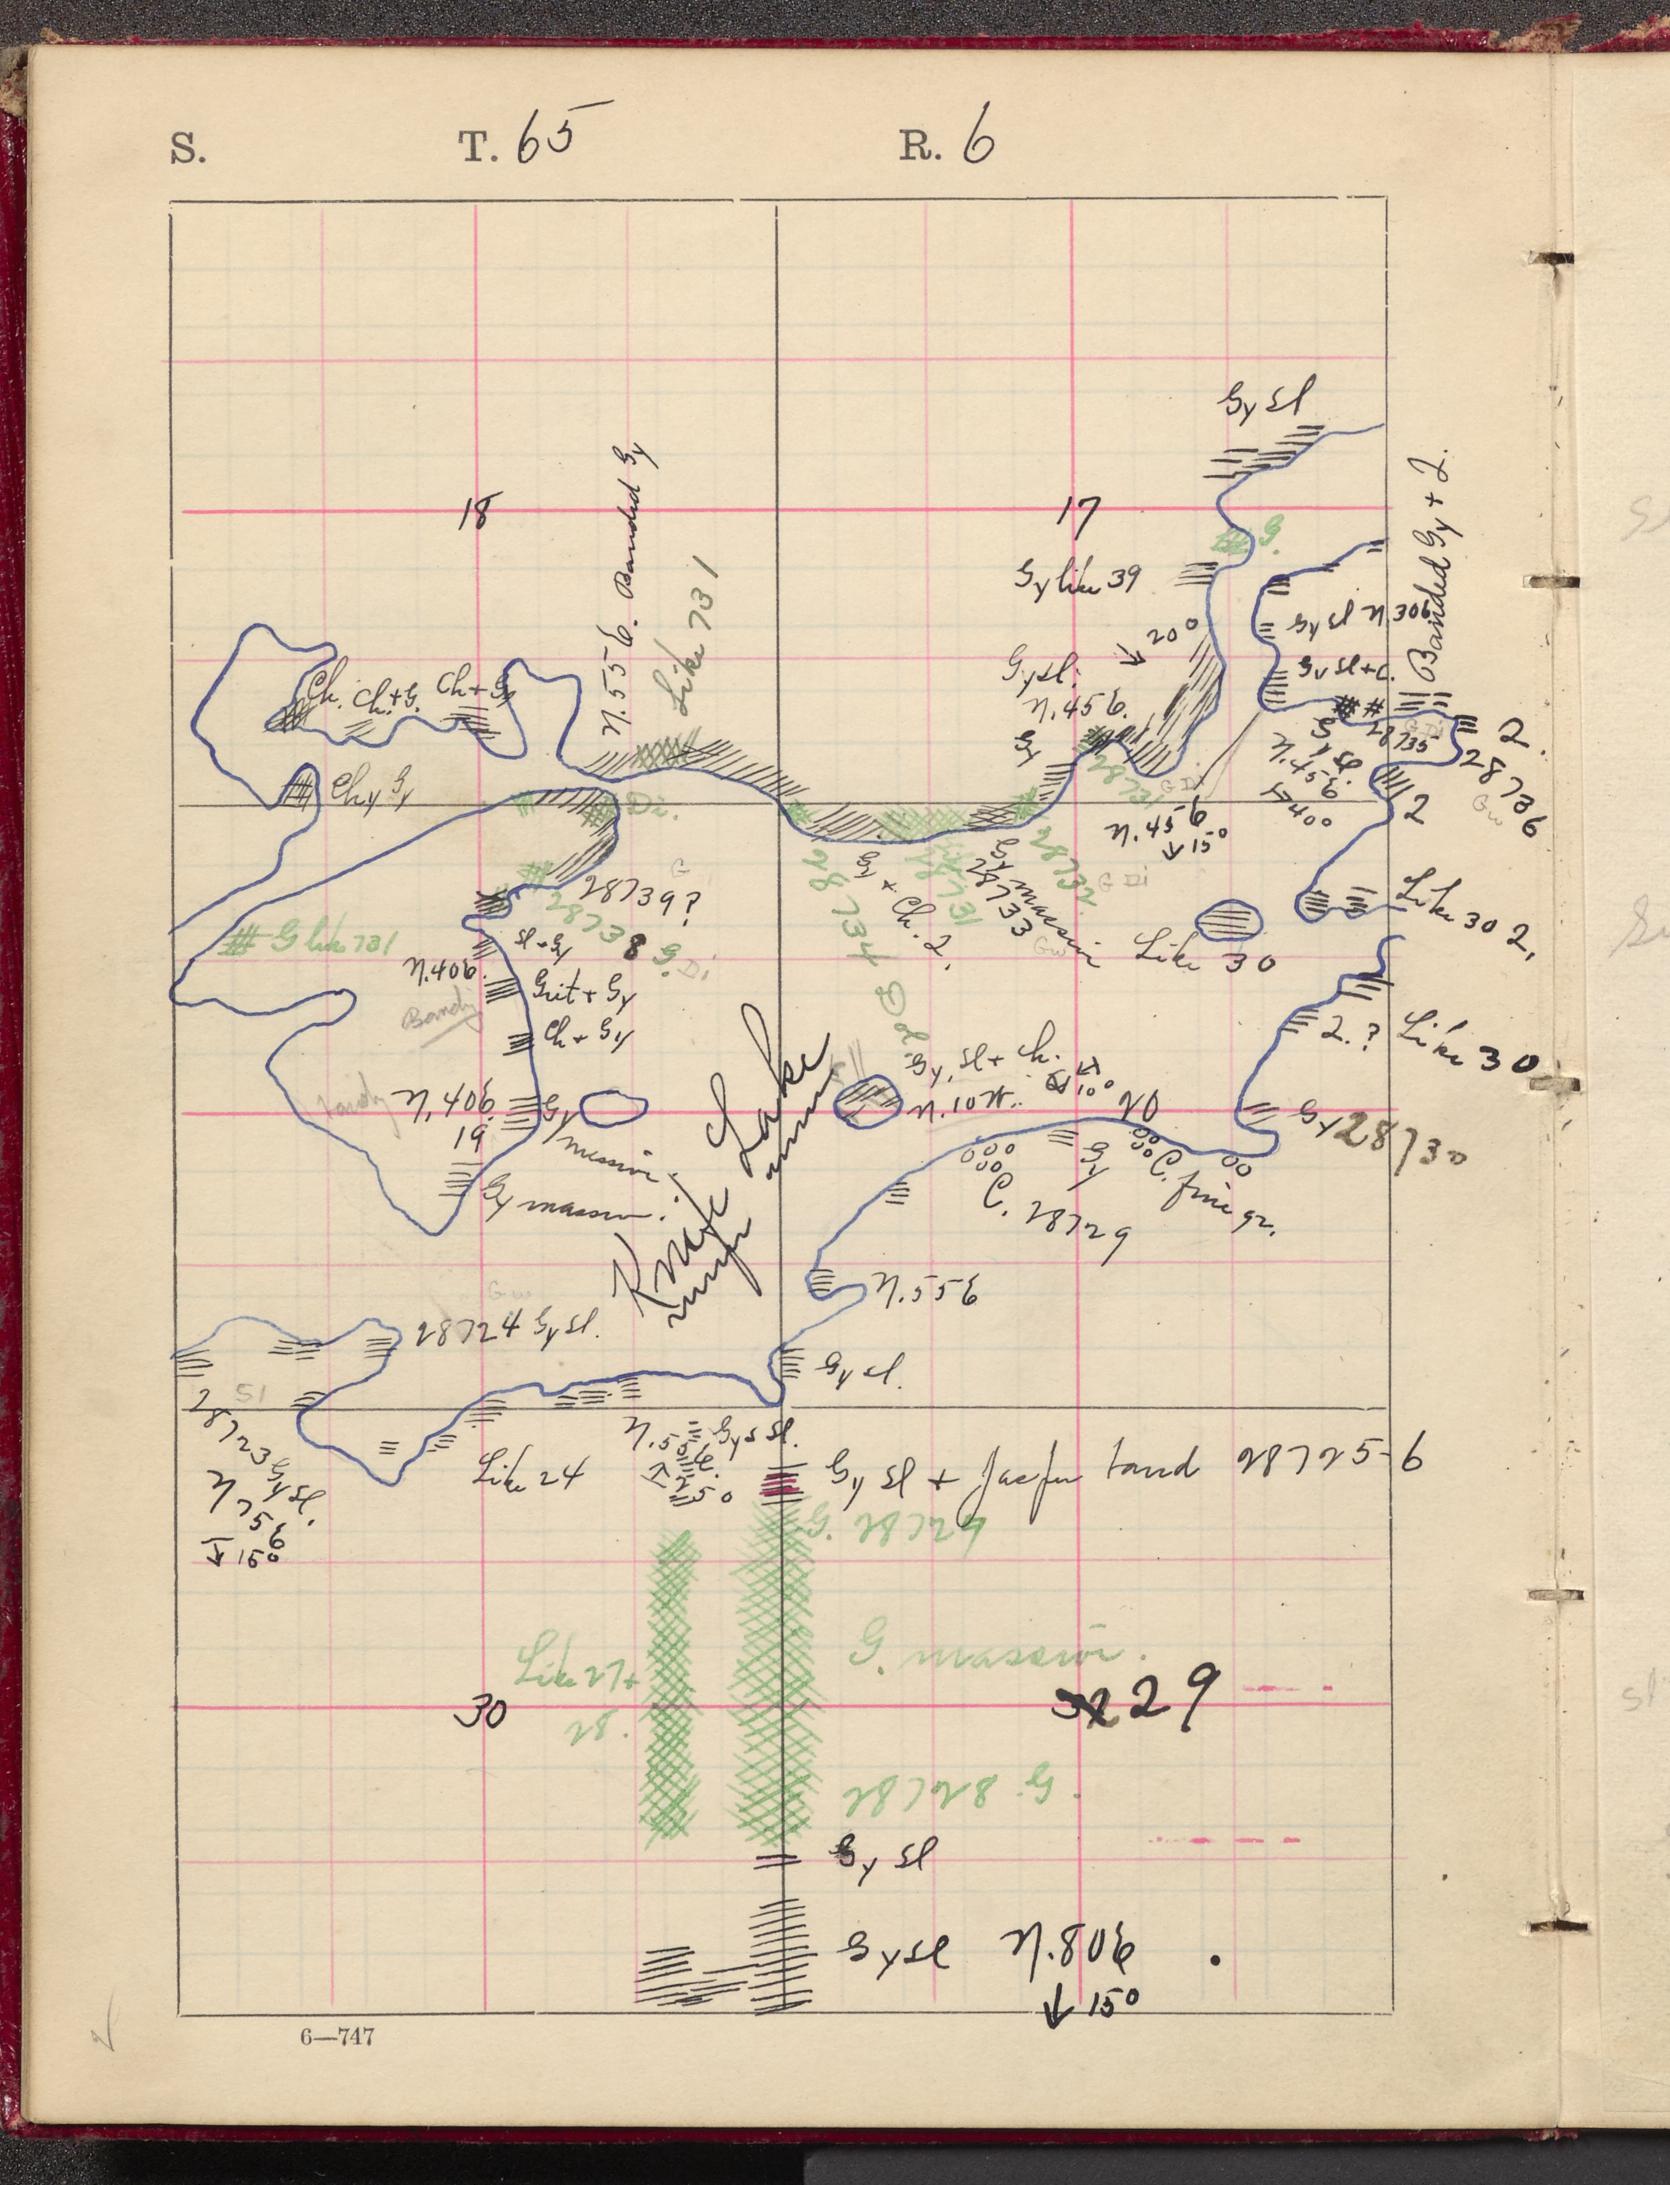 S. T. 65 R. 6
Gy Sl
18
17
N. 55 E. Banded Gy
Like 731
Banded Gy + 2.
G.
Gy like 39
20°
Gy sl N. 30 E
Gy sl + C.
Gy sl.
N. 45 E.
Gy
Ch. Ch+G. Ch+Gy
Ch y Gy
28735
2.
28736
Gw
N. 45 E.
40°
2
Di.
28731
G Di
N. 45 E
15°
28732
G Di
28739?
G
28738 G.
Di
Gy + Ch. 2.
28734 G
Gy massive
28733
Gw
Like 30
Like 30 2.
G like 731
Sl + Gy
N. 40 E.
Grit + Gy
Bandy
Ch + Gy
2.? Like 30
Gy, Sl + Ch.
N. 10 W.
10°
20
N. 40 E.
19
Gy massive.
Gy massive.
Knife Lake
Gy 28730
Gy
C. fine gr.
C. 28729
N. 55 E
Gw
28724 Gy sl.
Gy sl.
51
28723 Gy sl.
N 75 E
15°
Like 24
N. 55 E.
Gy s sl.
50
Gy Sl + Jasper band 28725-6
G. 28727
Like 27 +
28.
G. massive.
30
29
28728 G.
Gy Sl
Gy sl N. 80 E
15°
6—747